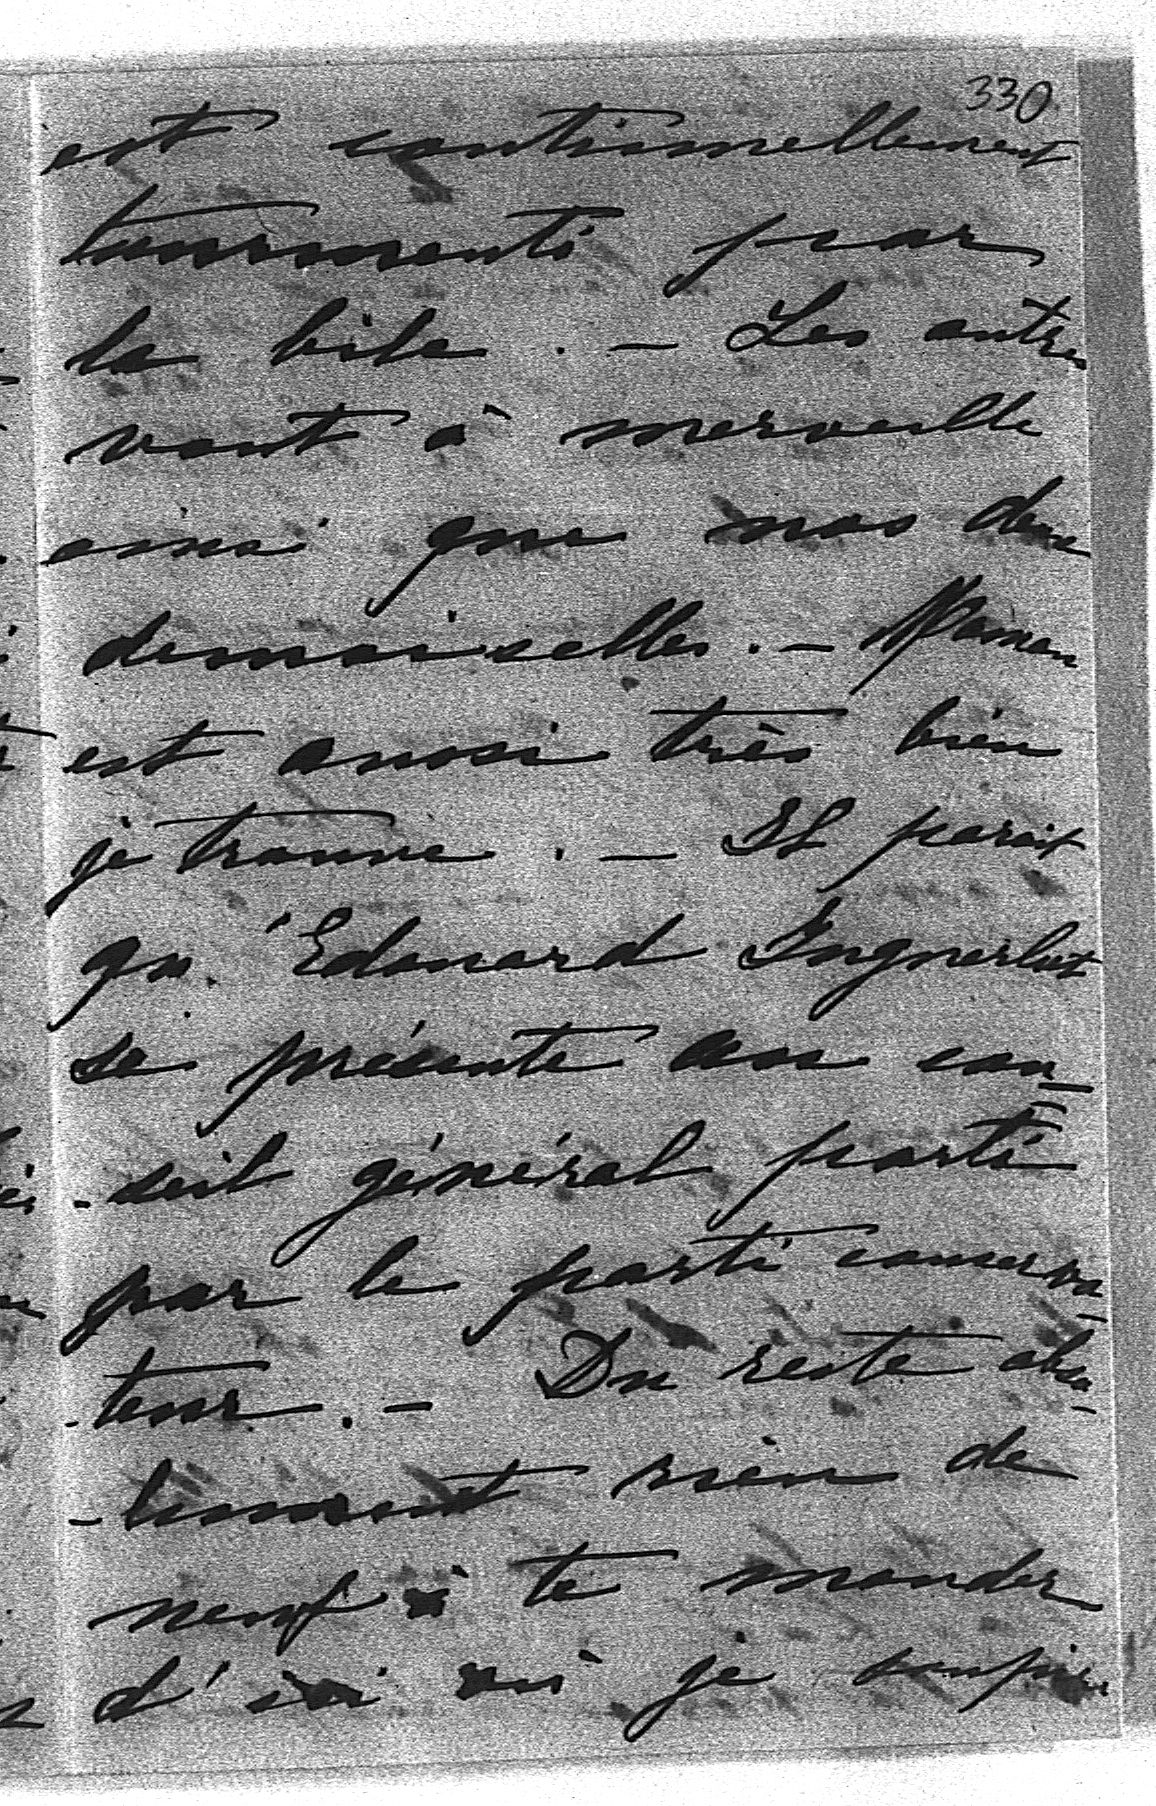 330
est continuellement
tourmenté par
la bile . – Les autres
vont à merveille
ainsi que nos deux
demoiselles . – Maman
est aussi très bien
je trouve . – Il parait
qu'Edouard
se présente au con-
-seil général porté
par le parti conserva-
-teur . – Du reste abso-
-lument rien de
neuf à te mander
d'ici où je soupire